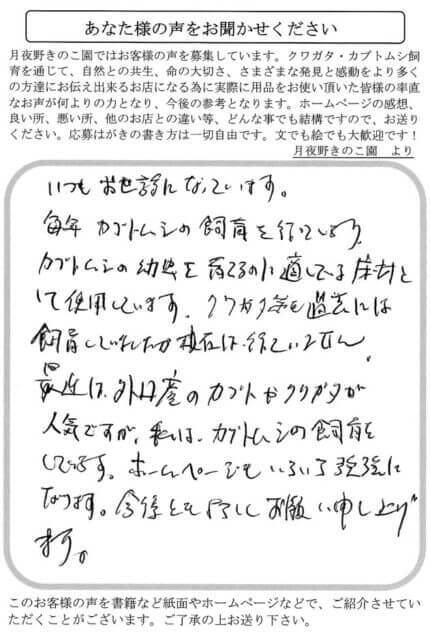 あなた様の声をお聞かせください
月夜野きのこ園ではお客様の声を募集しています。クワガタ・カブトムシ飼
育を通じて、自然との共生、命の大切さ、さまざまな発見と感動をより多く
の方達にお伝え出来るお店になる為に実際に用品をお使い頂いた皆様の率直
なお声が何よりの力となり、今後の参考となります。ホームページの感想、
良い所、悪い所、他のお店との違い等、どんな事でも結構ですので、お送り
ください。応募はがきの書き方は一切自由です。文でも絵でも大歓迎です！
月夜野きのこ園　より
いつもお世話になっています。
毎年カブトムシの飼育を行っています。
カブトムシの幼虫を育てるのに適している床材と
して使用しています。クワガタ等も過去には
飼育していましたが現在は行っていません。
最近は、外国産のカブトやクワガタが
人気ですが、私は、カブトムシの飼育を
しています。ホームページもいろいろ勉強に
なります。今後とも宜しくお願い申し上げ
ます。
このお客様の声を書籍など紙面やホームページなどで、ご紹介させてい
ただくことがございます。ご了承の上お送り下さい。